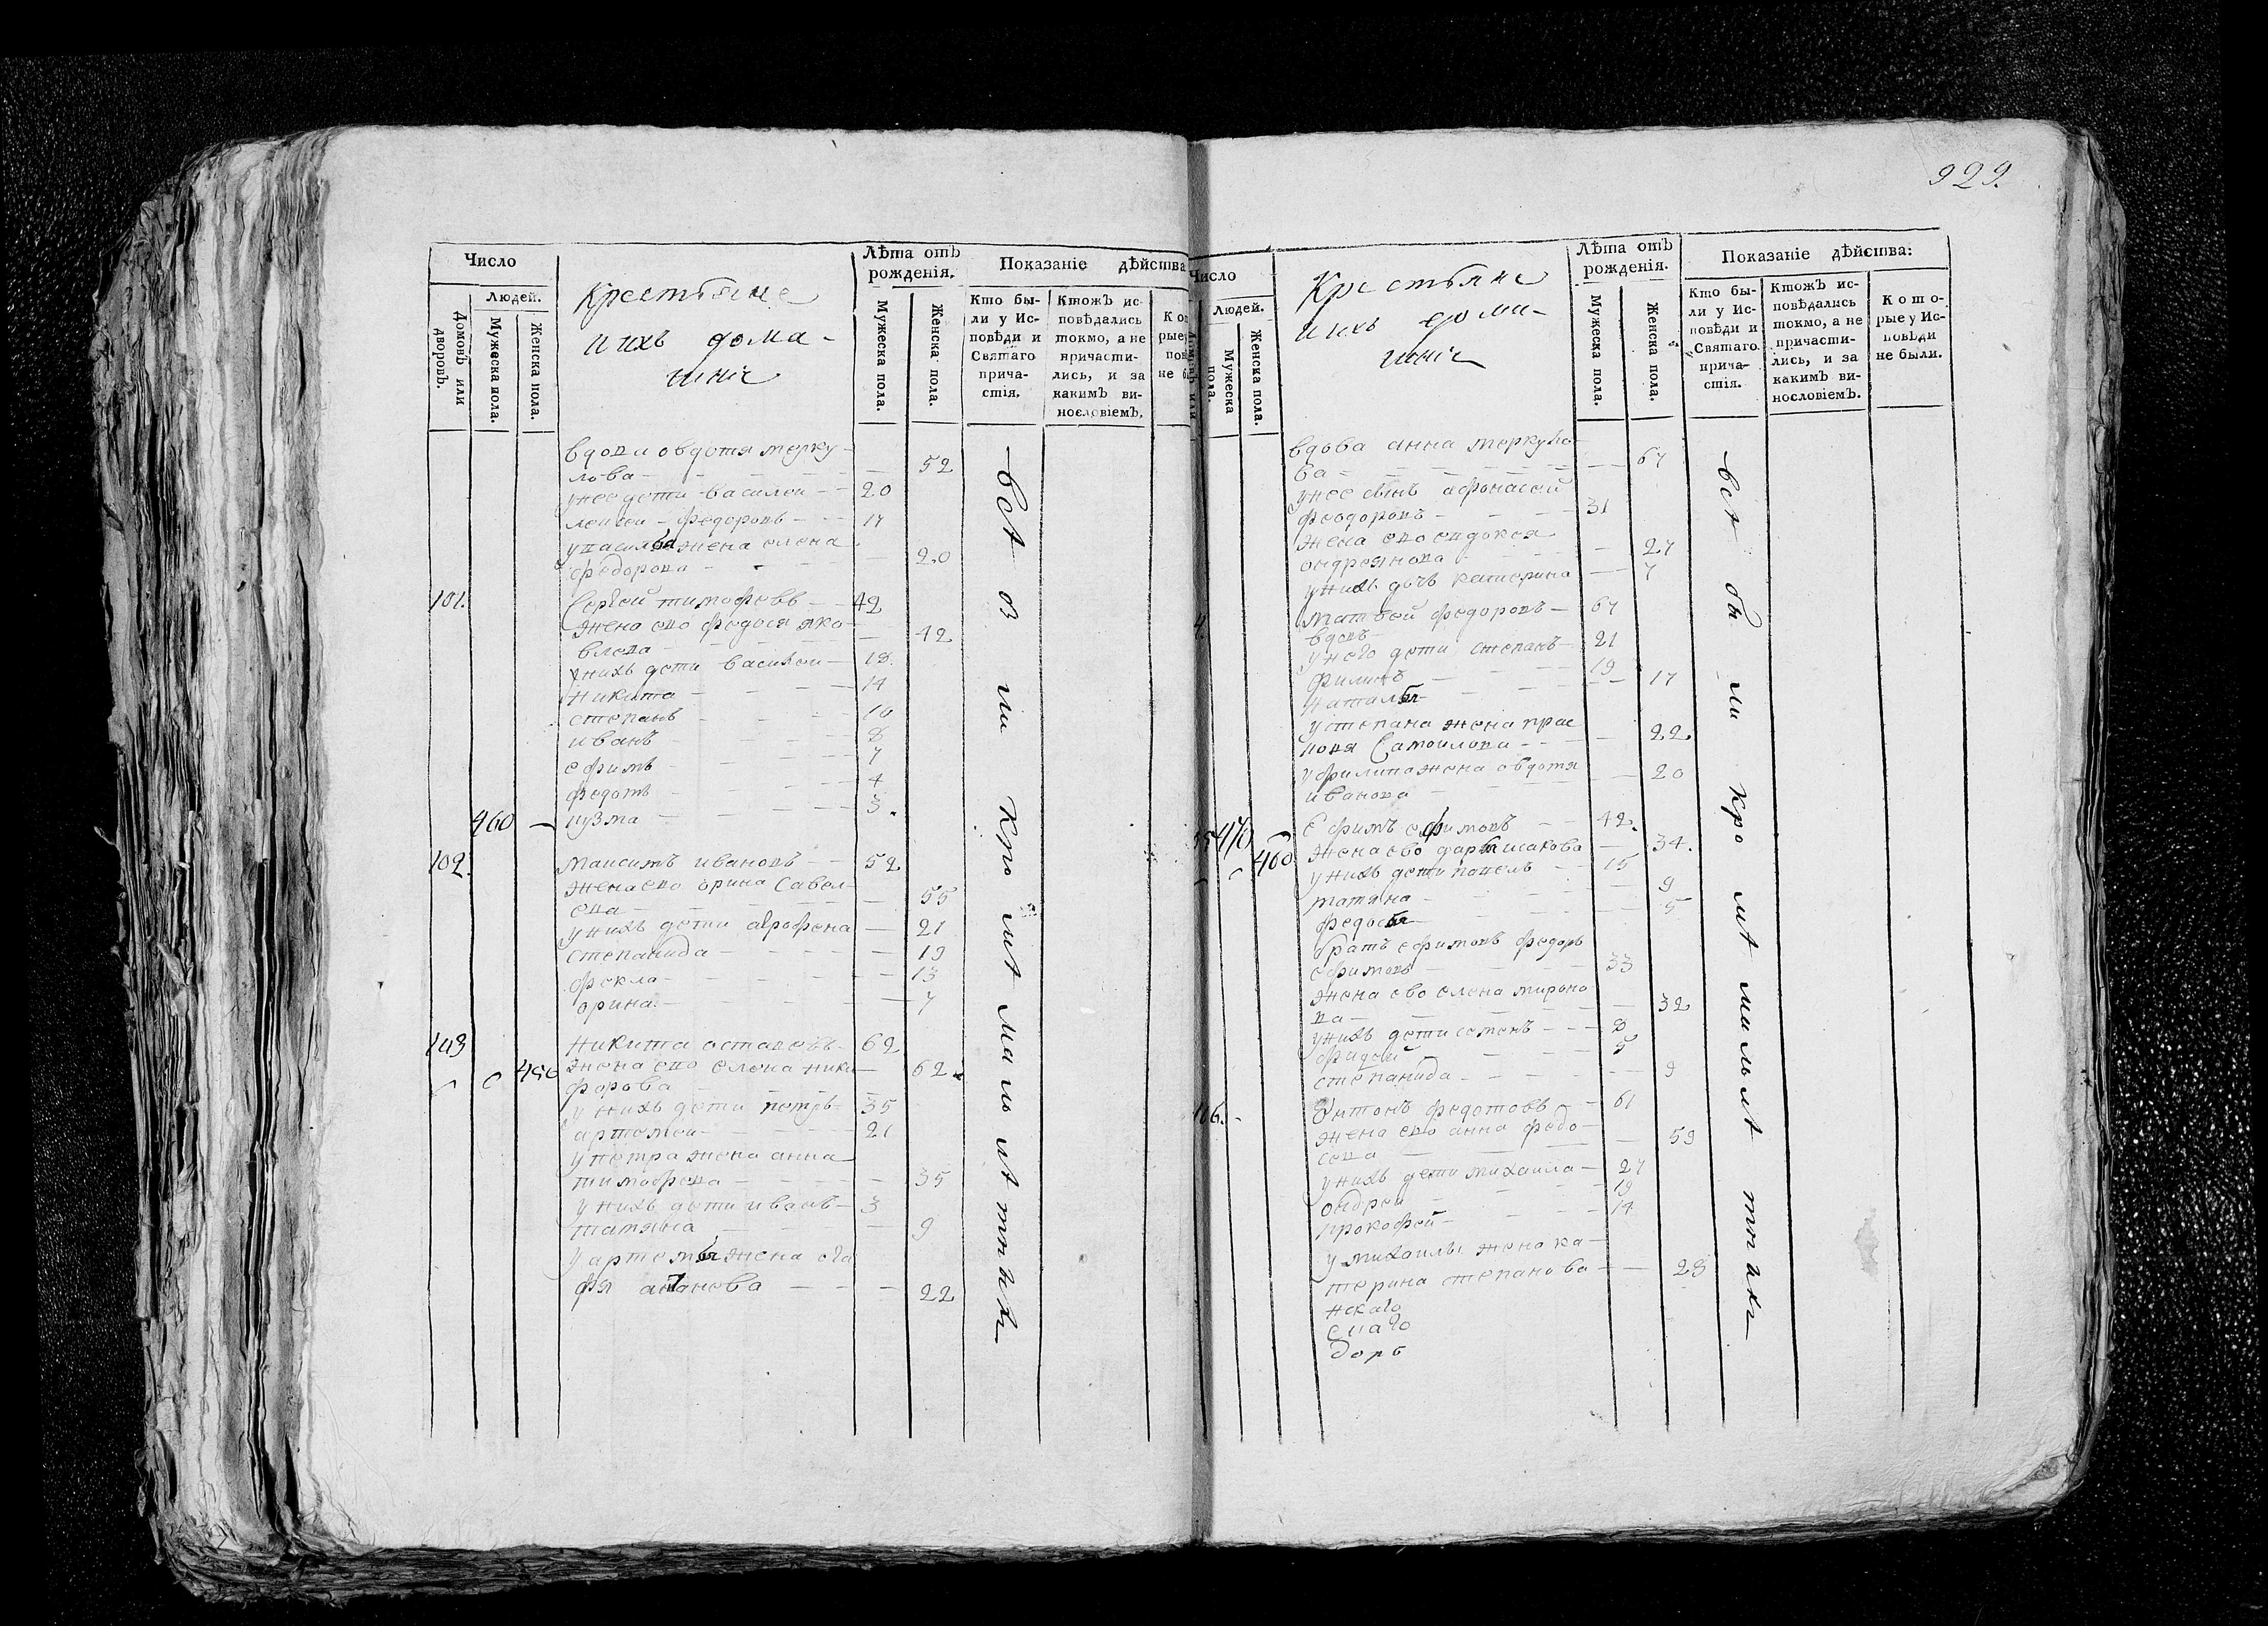 929.
Число
Людей.
Домовъ или дворовъ.
Мужеска пола.
Женска пола.
Крестьяне
и ихъ дома-
шніе
Лѣта отъ рожденія.
Мужеска пола.
Женска пола.
Показаніе дѣйства
Кто бы-
ли у Ис-
повѣди и
Святаго
прича-
стія.
Ктожъ ис-
повѣдались
токмо, а не
причасти-
лись, и за
какимъ ви-
нословіемъ.
вдова овдотя мерку
лова — 52
унее дети василеи — 20
федоровъ — 17
жена елена
федорова — 20
101. Сергеи тимофеевъ — 42
жена ево федося яко
влева — 42
унихъ дети василеи — 18
никита — 14
степанъ — 10
иванъ — 8
ефимъ — 7
федотъ — 4
460 — кузма — 3.
102. максимъ ивановъ — 52
жена ево орина савел
ева — 55
унихъ дети агрофена — 21
степанида — 19
фекла — 13
орина — 7
103 никита остаповъ — 62
450 жена ево елена ники — 62
форова
унихъ дети петръ — 35
артемеи — 21
упетра жена анна
тимофева — 35
унихъ дети иванъ — 3
татяна — 9
уартемья жена ога
фя — 22
всѣ бы ли кро мѣ ма лѣ тнихъ
Число
Людей.
Мужеска пола.
Женска пола.
Крестьяне
и ихъ дома-
шніе
Лѣта отъ рожденія.
Мужеска пола.
Женска пола.
Показаніе дѣйства:
Кто бы-
ли у Ис-
повѣди и
Святаго
прича-
стія.
Ктожъ ис-
повѣдались
токмо, а не
причасти-
лись, и за
какимъ ви-
нословіемъ.
Кото-
рые у Ис-
повѣди
не были.
вдова анна меркуло
ва — 67
унее сынъ афонасей
феодоровъ — 31
жена ево евдокея
ондреянова — 27
унихъ дочь катерина — 7
матвей федоровъ — 67
вдовъ
унего дети степанъ — 21
филипъ — 19
наталья — 17
устепана жена прас
ковя Самоилова — 22.
уфилипа жена овдотя — 20
иванова
470 Ефимъ ефимовъ — 42.
460 жена ево дарья исакова — 34.
унихъ дети павелъ — 15
татяна — 9
федосья — 5
братъ ефимовъ федоръ
ефимовъ — 33
жена ево елена мироно
ва — 32
унихъ дети семенъ — 8
5
степанида — 9
106. Антонъ федотовъ — 61
жена ево анна федо
сева — 59
унихъ дети михаила — 27
ондреи — 19
прокофей — 14
умихаилы жена ка
терина степанова — 28
нскаго
дорѣ
всѣ бы ли кро мѣ ма лѣ тнихъ